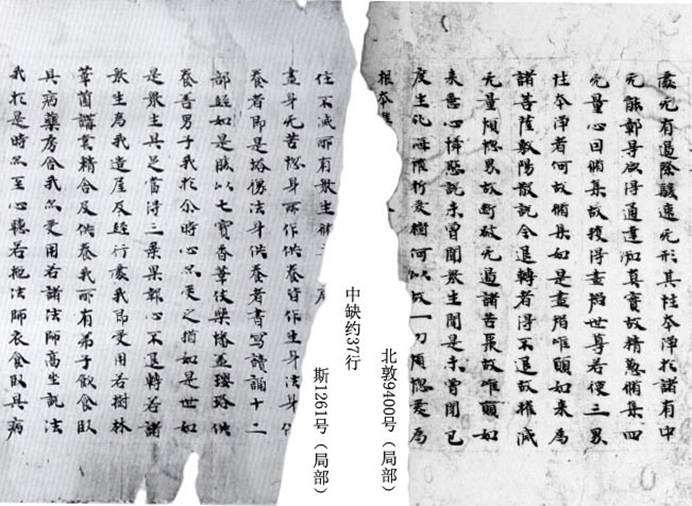 處无有過除諸速无形其性本淨於諸有中
无能鄣导欲得通達知真寶故精懃脩集四
无量心回脩集故獲得盡世尊若使三界
性本淨者何故脩集如是盡唯願如來為
諸菩薩敷陽散說令退轉者得不退故摧滅
无量煩惱界故斷破无邊諸苦聚故唯願如
來慈心憐愍說未曾聞眾生聞是未曾聞已
度生死海摧折愛樹何以故一切煩惱愛為
根本
北敦9400号（局部）
中缺约37行
斯1261号（局部）
住不滅所有眾生
盡身无苦惱身所作供養皆作生身法身
養者即是塔像法身供養者書寫讀誦十二
部經如是以七寶香華伎樂幡盖瓔珞供
養善男子我於尒時心受之猶如是世如
是眾生具足當得三乘果報心不退轉若諸
眾生為我造及經行處我即受用若樹林
草講堂精舍及供養我所有弟子飲食臥
具病藥房舍我受用若諸法師高坐說法
我於是時至心聽若施法師衣食臥具病